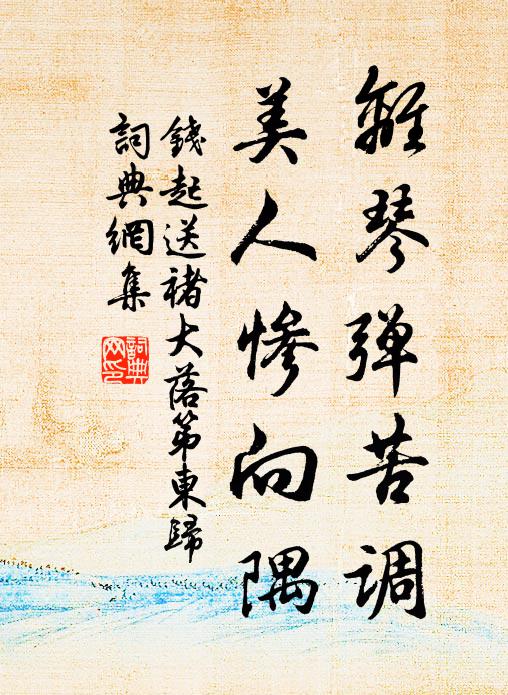 離琴弹苦调
美人惨向隅
錢起送褚大落第東歸
詞典網集
詞典网印